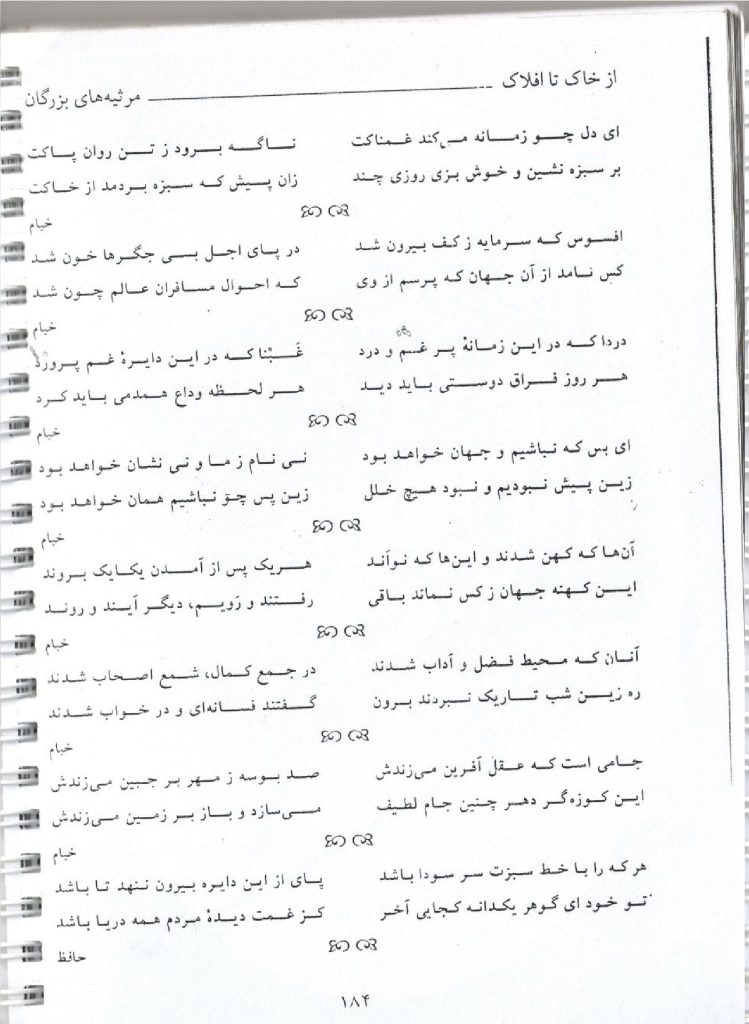 از خاک تا افلاک مرثیه‌های بزرگان
ای دل چو زمانه می‌کند غمناکت ناگه برود ز تن روان پاکت
بر سبزه نشین و خوش بزی روزی چند زان پیش که سبزه بردمد از خاکت
خیام
افسوس که سرمایه ز کف بیرون شد در پای اجل بسی جگرها خون شد
کس نامد از آن جهان که پرسم از وی که احوال مسافران عالم چون شد
خیام
دردا که در این زمانهٔ پر غم و درد غَبْنا که در این دایرهٔ غم پرورد
هر روز فراق دوستی باید دید هر لحظه وداع همدمی باید کرد
خیام
ای بس که نباشیم و جهان خواهد بود نی نام ز ما و نی نشان خواهد بود
زین پیش نبودیم و نبود هیچ خلل زین پس چو نباشیم همان خواهد بود
خیام
آن‌ها که کهن شدند و این‌ها که نواَند هریک پس از آمدن یکایک بروند
این کهنه جهان ز کس نماند باقی رفتند و رَویم، دیگر آیند و روند
خیام
آنان که محیط فضل و آداب شدند در جمع کمال، شمع اصحاب شدند
ره زین شب تاریک نبردند برون گفتند فسانه‌ای و در خواب شدند
خیام
جامی است که عقل آفرین می‌زندش صد بوسه ز مهر بر جبین می‌زندش
این کوزه‌گر دهر چنین جام لطیف می‌سازد و باز بر زمین می‌زندش
خیام
هر که را با خط سبزت سر سودا باشد پای از این دایره بیرون ننهد تا باشد
تو خود ای گوهر یکدانه کجایی آخر کز غمت دیدهٔ مردم همه دریا باشد
حافظ
۱۸۴